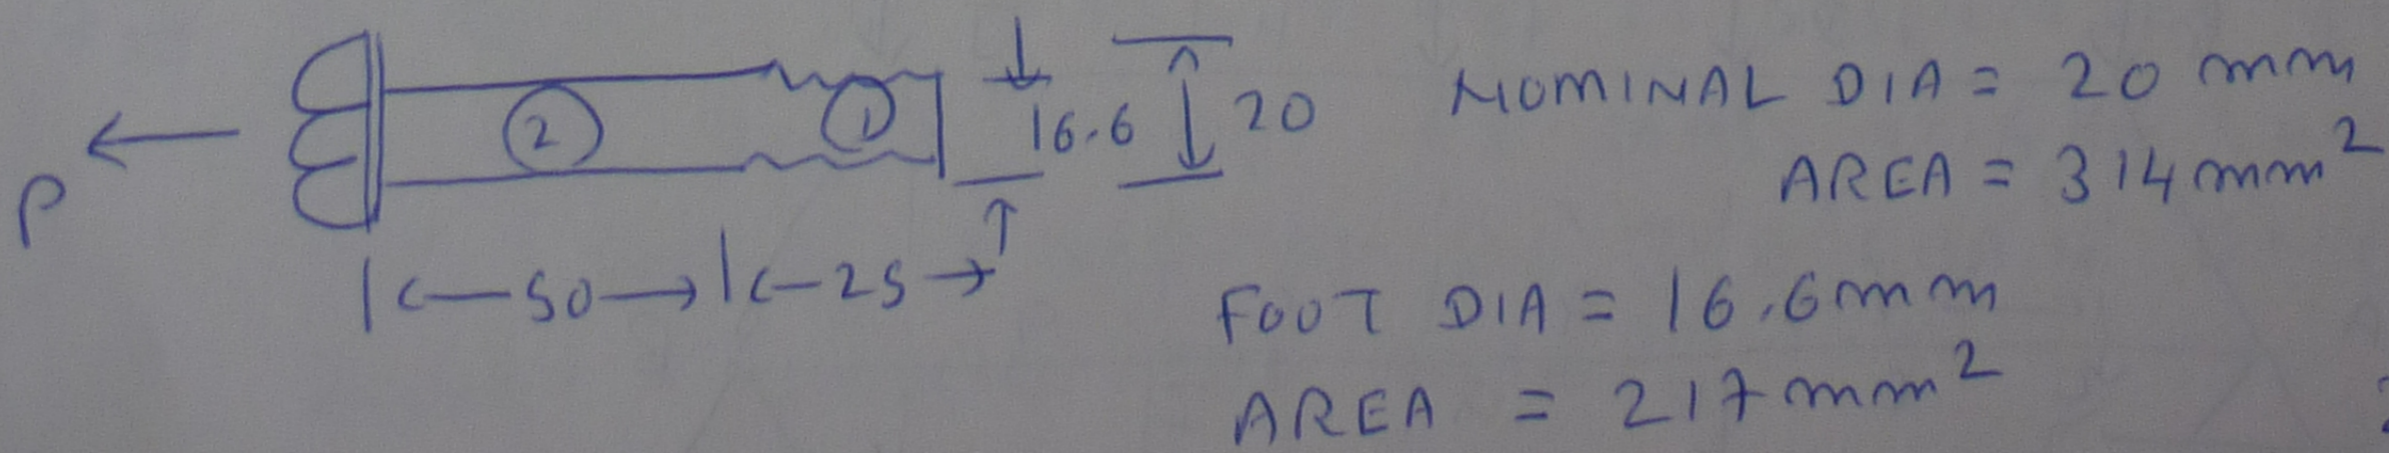 P
2
1
16.6
20
50
25
NOMINAL DIA = 20 mm
AREA = 314 mm²
FOOT DIA = 16.6mm
AREA = 217mm²